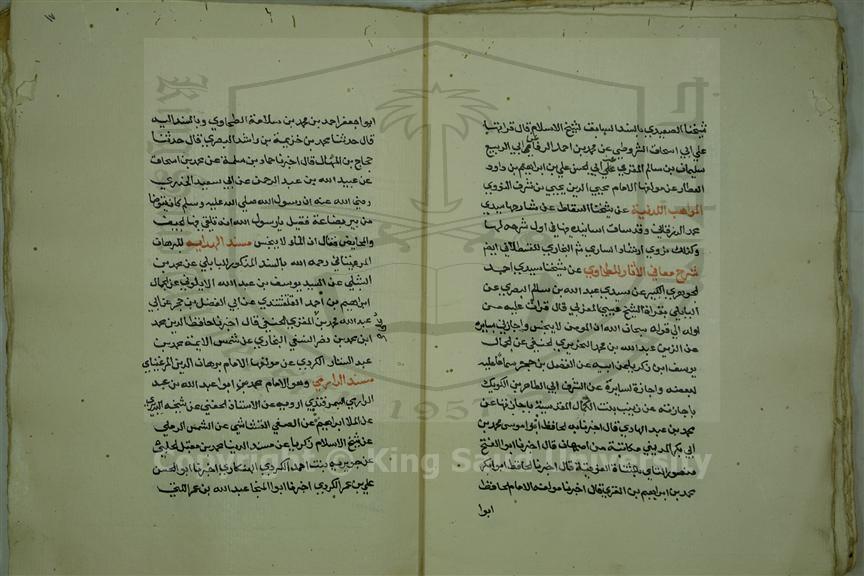 شيخنا الصعيدي بالسند السابق لشيخ الاسلام قال قراتها
علي ابي اسحاق الشروطي عن محمد بن احمد الرفا علي ابي الربيع
سليمان بن سالم الغزي علي ابي الحسن علي بن ابراهيم بن داود
العطار عن مولفها الامام محيي الدين يحيي بن شرف النووي
المواهب اللدنية عن شيخنا السقاط عن شارحها سيدي
محمد الزرقاني وقد ساق اسانيده فيها في اول شرحه لها
وكذلك نروي ارشاد الساري شرح البخاري للقسطلاني ايضا
شرح معاني الاثار للطحاوي عن شيخنا سيدي احمد
الجوهري الكبير عن سيدي عبد الله بن سالم البصري عن
البابلي بقراة الشيخ عيسي المغربي قال قرات عليه من
اوله الي قوله سبحان الله ان المومن لا ينجس واجازني سايره
عن الزين عبد الله بن محمد النحريري الحنفي عن الجمال
يوسف ابن زكريا عن ابيه عن الفضل بن حجر سماعا عليه
لبعضه واجازة لسايره عن الشرف ابي الطاهر بن الكويك
باجازته عن زينب بنت الكمال المقدسية باجازتها عن
محمد بن عبد الهادي قال اخبرنا به الحافظ ابو موسي محمد بن
ابي بكر المديني مكاتبة من اصبهان قال اخبرنا ابو الفتح
منصور التاني بالمثناة الفوقية قال اخبرنا الحافظ ابو بكر
محمد بن ابراهيم بن المقري قال اخبرنا مولفه الامام الحافظ
ابوا
١٧
ابوا جعفر احمد بن محمد بن سلامة الطحاوي وبالسند اليه
قال حدثنا محمد بن خزيمة بن راشد البصري قال حدثنا
حجاج بن المنهال قال اخبرنا حماد بن سلمة عن محمد بن اسحاق
عن عبيد الله بن عبد الرحمن عن ابي سعيد الخدري
رضي الله عنه ان رسول الله صلي الله عليه وسلم كان يتوضا
من بير بضاعة فقيل يارسول الله انه تلقي فيها الجيف
والمحايض فقال ان الماء لا ينجس مسند الهدايه للبرهان
المرغيناني رحمه الله بالسند المذكور للبابلي عن محمد بن
الشلبي عن السيد يوسف بن عبد الله الارميوني عن الجمال
ابراهيم بن احمد القلقشندي عن ابي الفضل بن حجر عن ابي
عبد الله محمد بن المقري الحنفي قال اخبرنا الحافظ الدين محمد
ابن محمد بن نصر النسفي البخاري عن شمس الايمة محمد بن
عبد الستار الكردري عن مولفها الامام برهان الدين المرغيناني
مسند الدارمي وهو الامام محمد بن ابوا عبد الله بن عبد
الدارمي السمرقندي ارويه عن الاستاذ الحفني عن شيخه البديري
عن الملا ابراهيم عن الصفي القشاشي عن الشمس الرملي
عن شيخ الاسلام زكريا عن مسند الدنيا محمد بن مقبل الحلبي
عن جويرية بنت احمد الكردي الهكاري اخبرنا ابو الحسن
علي بن عمر الكردي اخبرنا ابوا المنجا عبد الله بن عمر اللتي
Copyright © King Saud University
1957